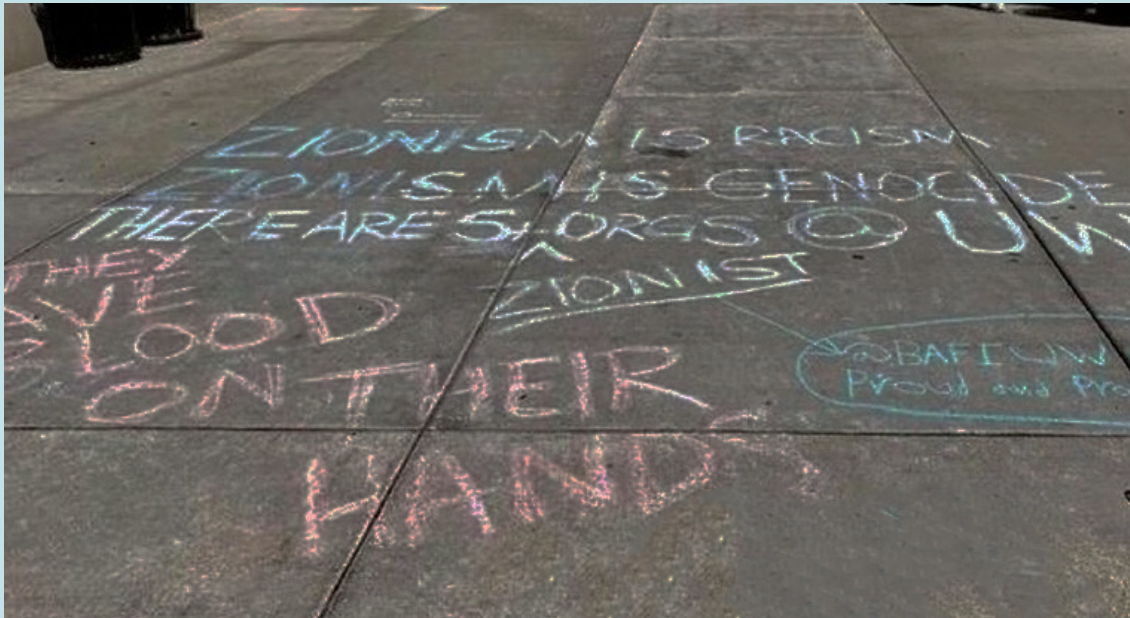 ZIONISM IS RACISM
ZIONISM IS GENOCIDE
THERE ARE 5 ORGS @ UW
ZIONIST
THEY
BLOOD
ON THEIR
HANDS
@BAFIUW
Proud and